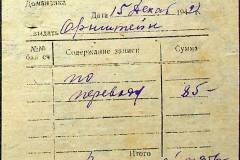 Доманивка
Дата 15 Декаб 194
выдать Орнштейн
№№ Содержание записи Сумма
бал сч
по
переводу 85-
Итого